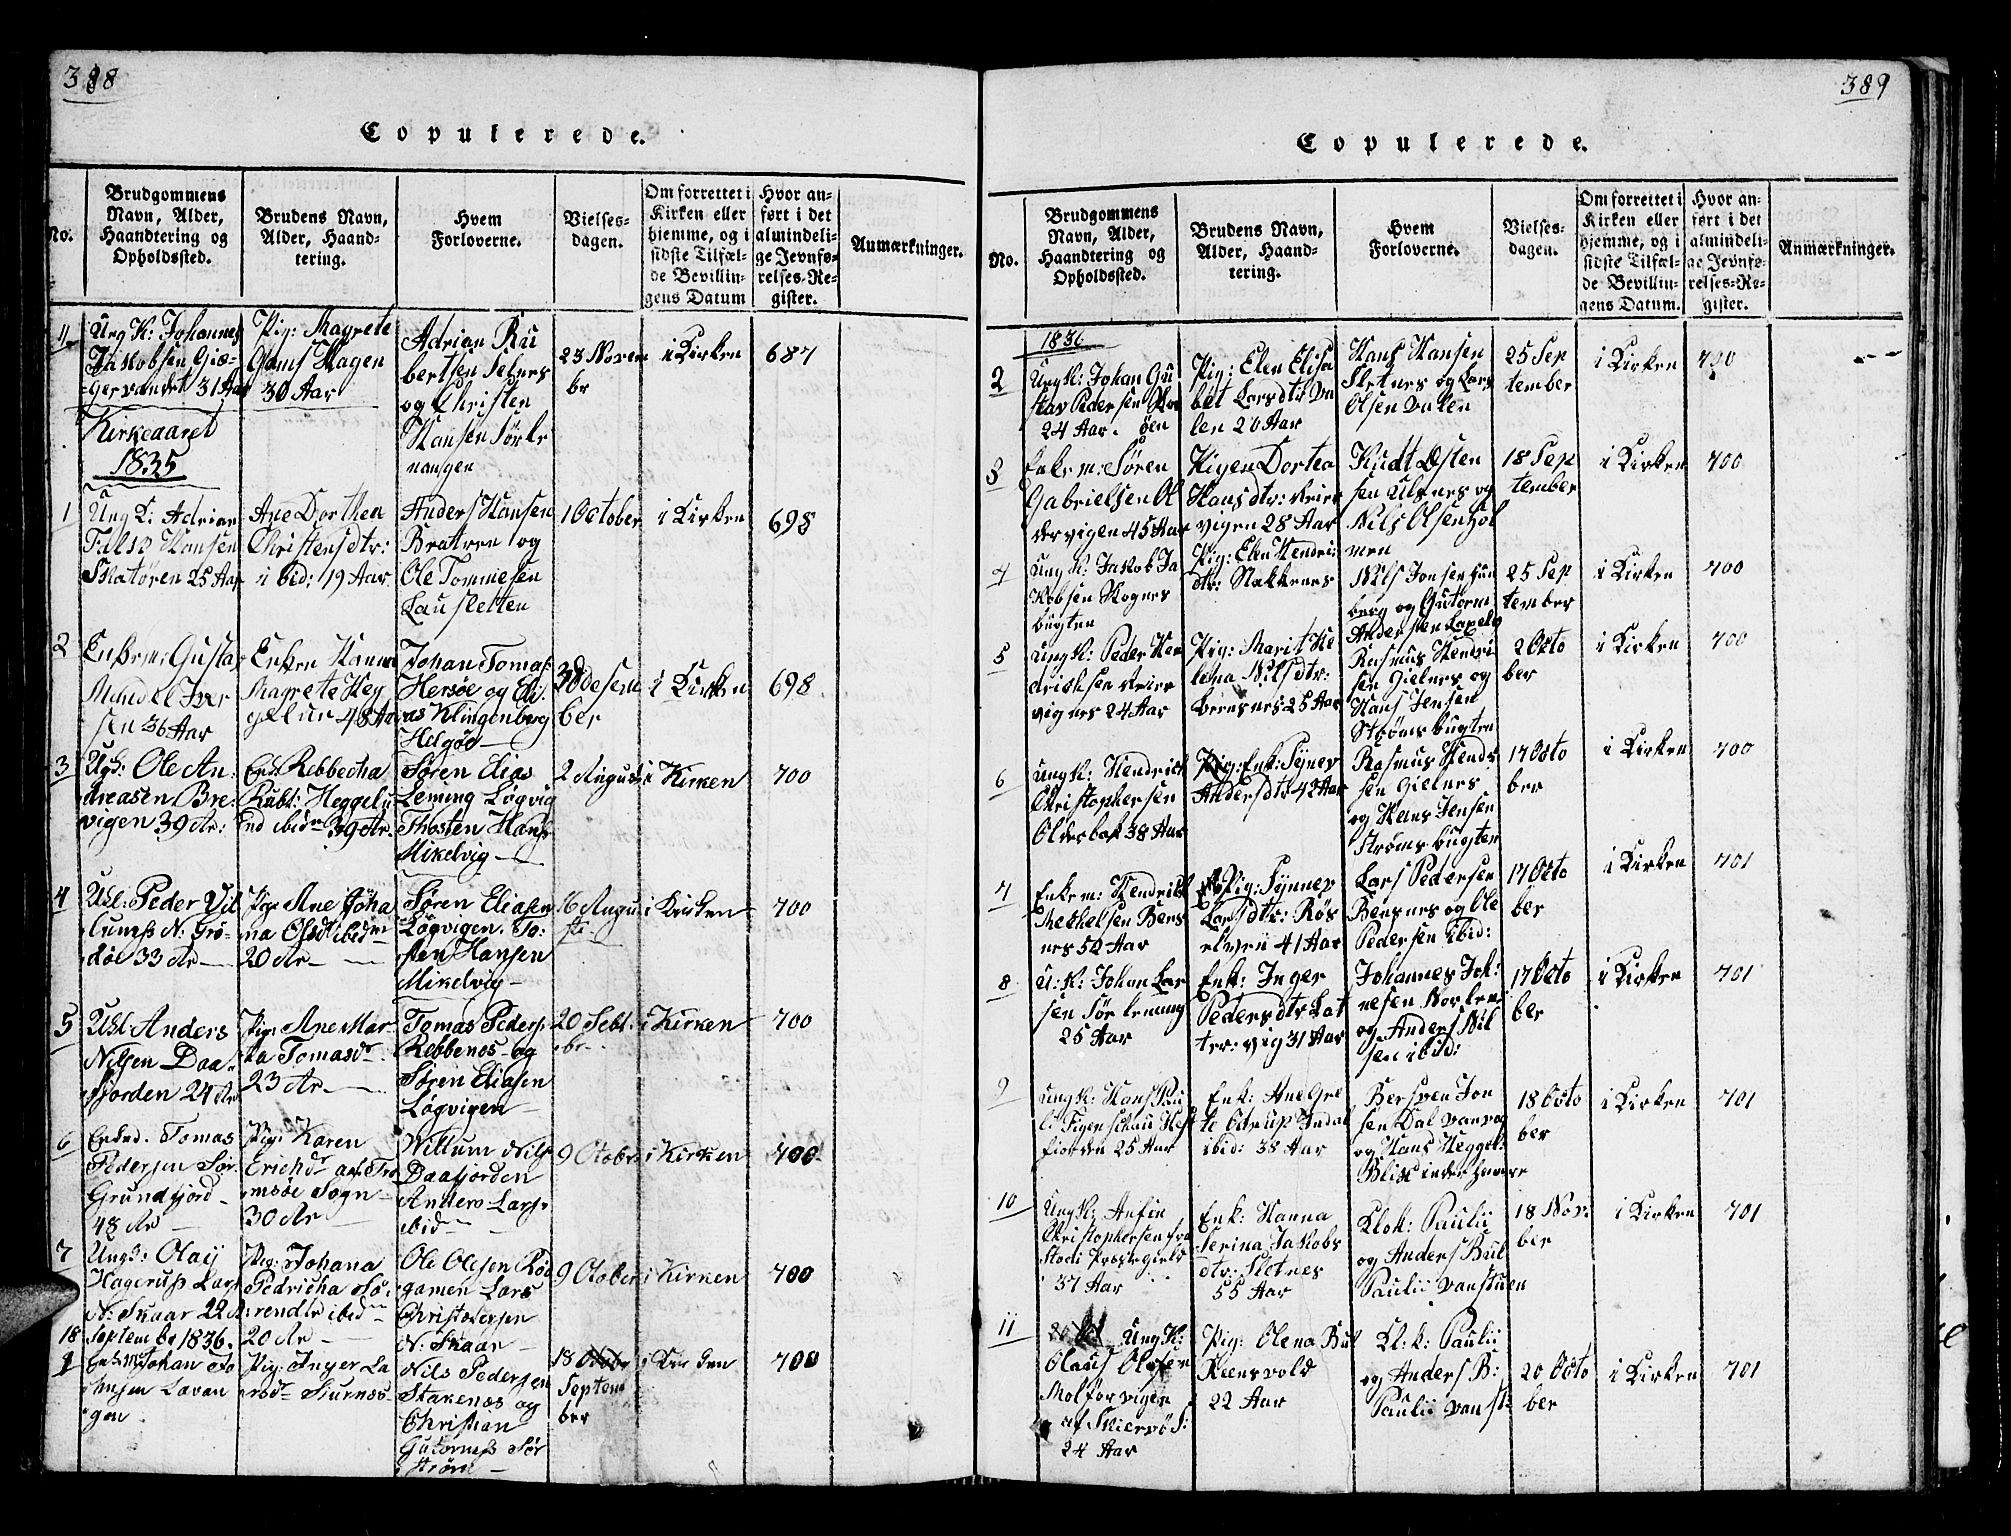 388
Copulerede.
No.
Brudgommens Navn, Alder, Haandtering og Opholdssted.
Brudens Navn, Alder, Haandtering.
Hvem Forloverne.
Vielsesdagen.
Om forrettet i Kirken eller hjemme, og i sidste Tilfælde Bevillingens Datum
Hvor anført i det almindelige Jevnførelses-Register.
Anmærkninger.
11
Ung K: Johannes
Jakobsen Giæ-
gervandet 31 Aar
Pig: Magrete
Hagen
30 Aar
Adrian Ru
bertsen Selnes
og Christen
Hansen Sørle
nangen
23 Novem
br
i Kirken
687
Kirkeaaret
1835
1
Ung K: Adrian
Falsb Hansen
Skatøren 25 Aar
Ane Dorthea
Christensdtr:
i ibid: 19 Aar.
Anders Hansen
Bratren og
Ole Tommesen
Lausletten
1 October
i Kirken
698
2
Enkem: Gustav
Mandel Iver
sen 36 Aar
Enken Hanna
Magrete Heg
gelun 48 Aar
Johan Tomas
Hersøe og Eli
as Klingenberg
Helgøe
28 desem
ber
i Kirken
698
3
Ugk: Ole An
dreasen Bre-
vigen 39 Ar:
Enk Rebbecka
Rubt: Heggelu
nd ibidm 39 Ar.
Søren Elias
Leming Løgvig
Thosten Hans
Mikelvig
2 August
i Kirken
700
4
Ukl: Peder Vil
lumsb N: Grø-
döe 33 Ar
Pig: Ane Joha
na Olsdt ibidm
20 Ar
Søren Eliasen
Løgvigen. To:
sten Hansen
Mikelvig
16 Augu
st
i Kirken
700
5
Ukl: Anders
Nilsen Daa-
fjorden 24 Ar
Pig: Ane Mar-
ta Tomasdr
23 Ar
Tomas Peders
Rebbenes og
Søren Eliasen
Løgvigen
20 Sebt:
br
i Kirken
700
6
Enkd. Tomas
Pedersen Sør
Grundfjord
48 Ar
Pig: Karen
Erichdr af Tro
msöe Sogn
30 Ar
Willum Nils
Daafjorden
Anders Lars
ibid
9 Otobr
i Kirken
700
7
Ungk: Olay
Hagerup Lars
N: Skaar 22 A
Pig: Johana
Pedricha Sö:
rendtr ibidm
20 Ar
Ole Olesen Röd
gamen Lars
Christofersen
N: Skaar
9 Otober
i Kirken
700
18 Septembr 1836.
1
Enkm Johan Jo
hnsen Lavan
gen
Pig: Inger La
rsdr Sturnes
Nils Pedersen
Stakenes og
Christian
Gutormsb Sør
strøm
18
Septem
ber
i Kirken
700
389
Copulerede.
No.
Brudgommens Navn, Alder, Haandtering og Opholdssted.
Brudens Navn, Alder, Haandtering.
Hvem Forloverne.
Vielsesdagen.
Om forrettet i Kirken eller hjemme, og i sidste Tilfælde Bevillingens Datum.
Hvor anført i det almindelige Jevnførelses-Register.
Anmærkninger.
1836
2
Ung K: Johan Gu
stav Pedersen
24 Aar. øen
Pig: Elen Elisa
bet Larsdtr Va
len 20 Aar
Hans Hansen
Sletnes og Lars
Olsen Valen
25 Sep
tember
i Kirken
700
3
Enkem: Søren
Gabrielsen Ol
dervigen 45 Aar
Pigen Dortea
Hansdtr: Reier
vigen 28 Aar
Knudt Østen
sen Ulsnes og
Nils Olsen Hol
men
18 Sep
tember
i Kirken
700
4
Ung K: Jakob Ja
kobsen Skognes
bugten
Pig: Elen Hendri
dtr: Nakkenes
Nils Jonsen Lun
berg og Gutorm
Andersen Laxelv
25 Sep
tember
i Kirken
700
5
Ung K: Peder Hen
driksen Reier
vignes 24 Aar
Pig: Marit He
lena Nilsdtr:
Bensnes 25 Aar
Rasmus Hendri
sen Gielnes og
Hans Jensen
Strømsbugten
2 Octo
ber
i Kirken
700
6
Ung K: Hendrich
Christophersen
Olderbak 38 Aar
Pig: Enk: Synev
Andersdtr 42 Aar
Rasmus Hendr
sen Gielnes
og Hans Jensen
Strømsbugten
17 Octo
ber
i Kirken
700
7
Enkem: Hendrich
Mekkelsen Bens
nes 50 Aar
Pig: Synnev
Larsdtr: Røs
elven 41 Aar
Lars Pedersen
Bensnes og Ole
Pedersen ibid:
17 Octo
ber
i Kirken
701
8
U: K: Johan Lar
sen Sør Leming
25 Aar
Enk: Inger
Pedersdtr Lat
ter: vig 31 Aar
Johannes Joh:
nesen Norlen:
og Anders Nil
sen ibid:
17 Octo
ber
i Kirken
701
9
Ung K: Hans Pau
li Figenschau Hest
fiorden 25 Aar
Enk: Ane Gre
te Ostrup Indal
ibid: 38 Aar
Bersven Jon
sen Dal Vanvag
og Hans Heggel:
Blix inderhavare
18 Octo
ber
i Kirken
701
10
Ung K: Anfin
Christophersen fra
Stodi Prestegield
37 Aar
Enk: Hanna
Serina Jakobs
dtr: Sletnes
55 Aar
Klok: Paulii
og Anders Bul
Paulii Vanstuen
18 Nov:
ber
i Kirken
701
11
Ung K:
Olaus Olasen
Molforvigen
af Skiervø S:
24 Aar
Pig: Olena Bul
Reensvold
22 Aar
Kl: k: Paulii
og Anders B:
Paulii Vanst:
20 Octo
ber
i Kirken
701